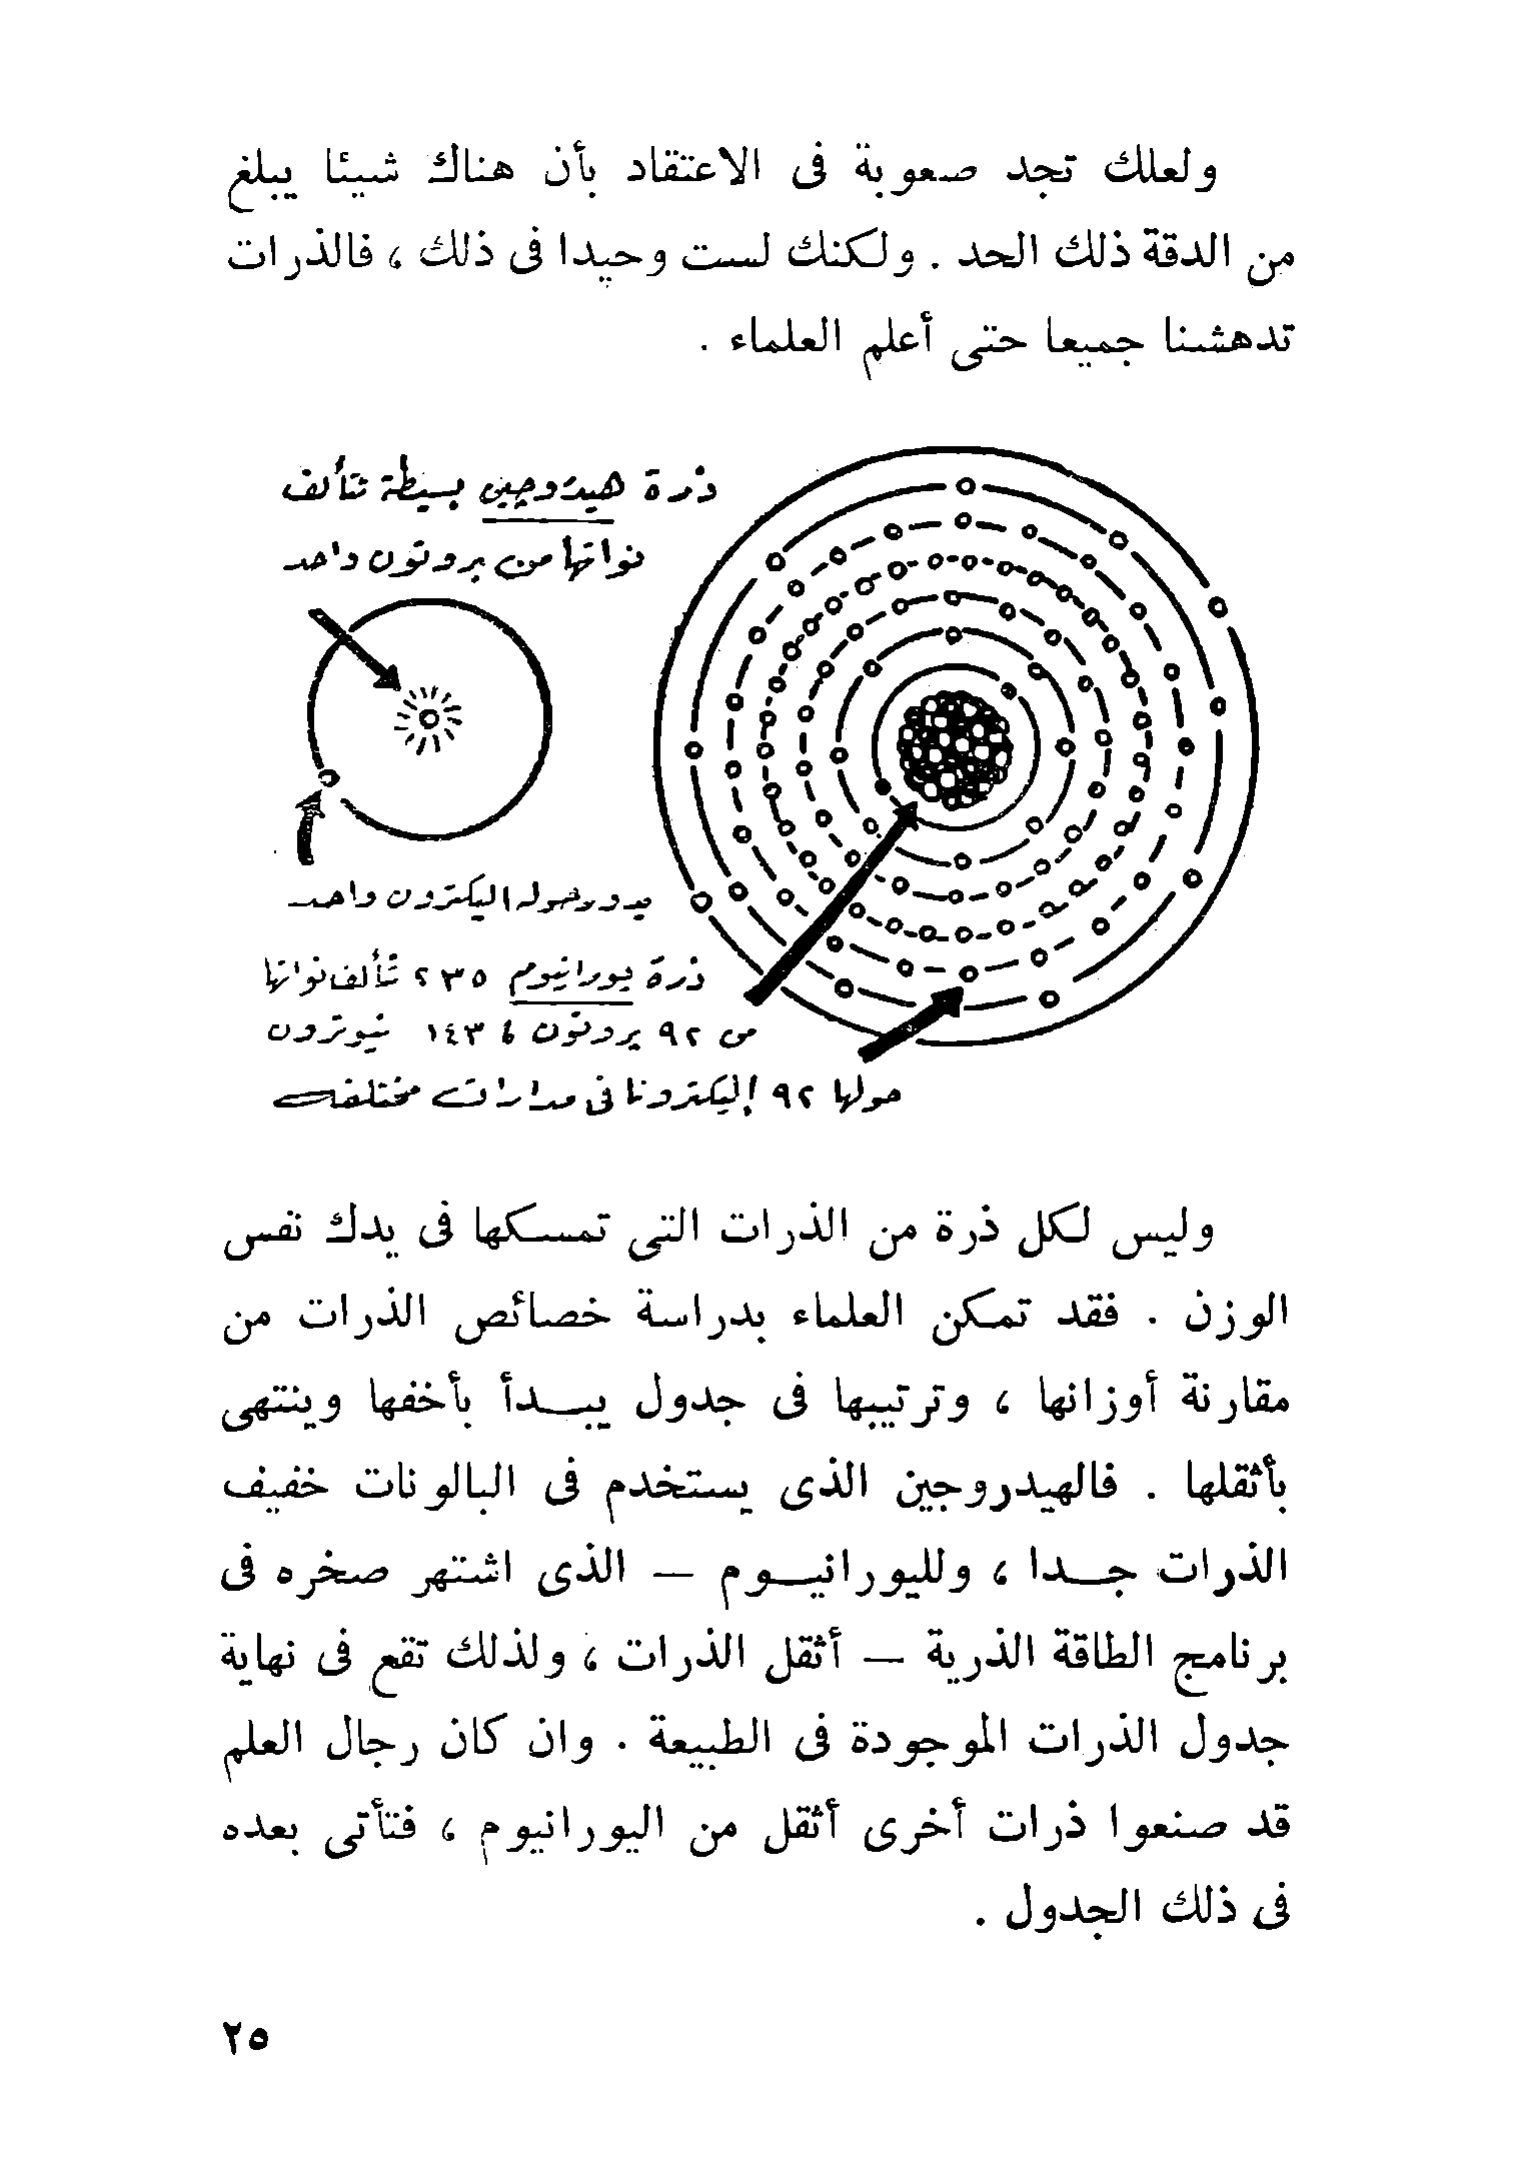 ولعلك تجد صعوبة فى الاعتقاد بأن هناك شيئا يبلغ
من الدقة ذلك الحد . ولكنك لست وحيدا فى ذلك ، فالذرات
تدهشنا جميعا حتى أعلم العلماء .
ذرة هيدروجين بسيطة تتألف
نواتها من بروتون واحد
يدور حوله اليكترون واحد
ذرة يورانيوم ٢٣٥ تتألف نواتها
من ٩٢ بروتون ، ١٤٣ نيوترون
حولها ٩٢ إليكترونا فى مدارات مختلفة
وليس لكل ذرة من الذرات التى تمسكها فى يدك نفس
الوزن . فقد تمكن العلماء بدراسة خصائص الذرات من
مقارنة أوزانها ، وترتيبها فى جدول يبدأ بأخفها وينتهى
بأثقلها . فالهيدروجين الذى يستخدم فى البالونات خفيف
الذرات جدا ، ولليورانيوم — الذى اشتهر صخره فى
برنامج الطاقة الذرية — أثقل الذرات ، ولذلك تقع فى نهاية
جدول الذرات الموجودة فى الطبيعة . وان كان رجال العلم
قد صنعوا ذرات أخرى أثقل من اليورانيوم ، فتأتى بعده
فى ذلك الجدول .
٢٥